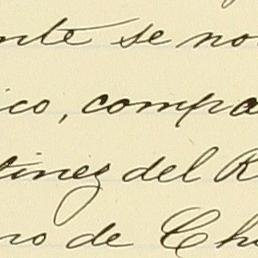 nte se no
ico, compa
tinez del R
ro de Chi